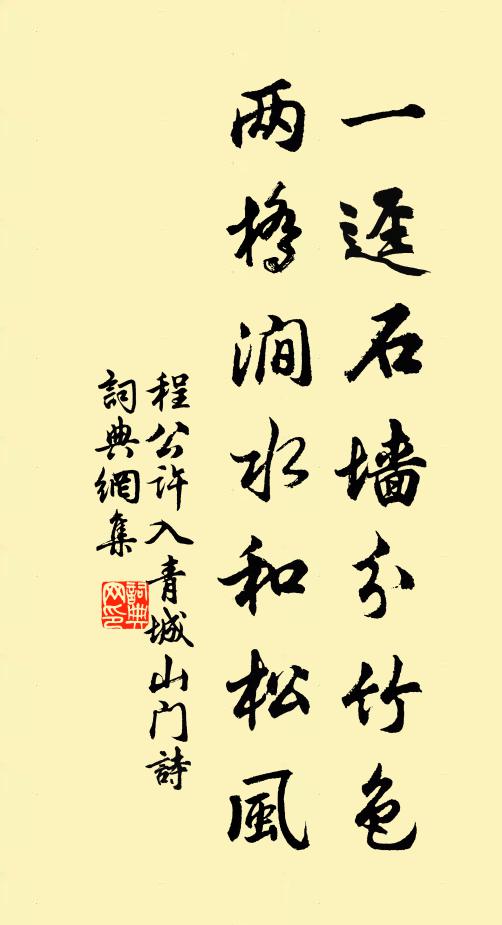 一迳石墙分竹色
两桥涧水和松風
程公许入青城山门詩
詞典網集
詞典
网印